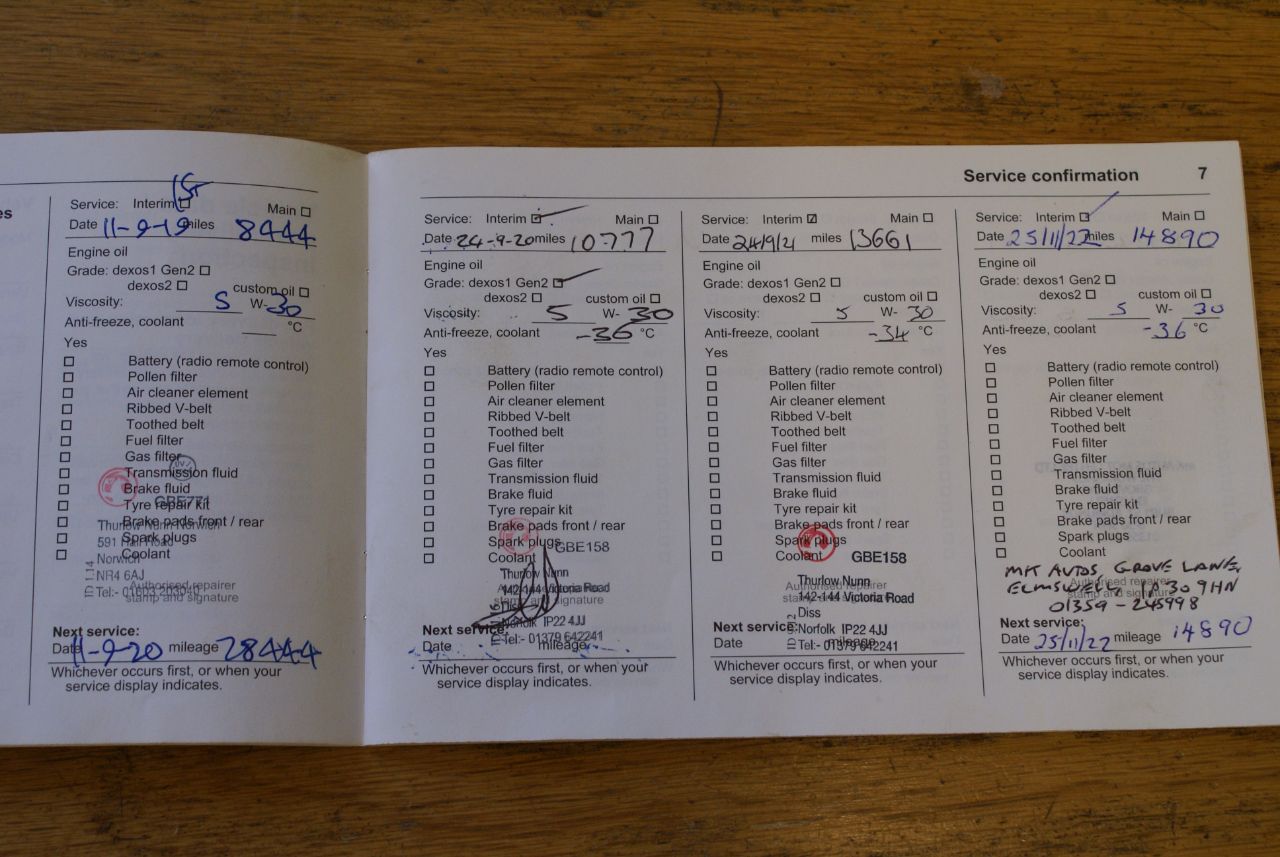 Service confirmation 7
es
1ST
Service: Interim Main
Date 11-9-19 miles 8444
Engine oil
Grade: dexos1 Gen2
dexos2 custom oil
Viscosity: 5 W-30
Anti-freeze, coolant °C
Yes
Battery (radio remote control)
Pollen filter
Air cleaner element
Ribbed V-belt
Toothed belt
Fuel filter
Gas filter
Transmission fluid
Brake fluid
GBE771
Tyre repair kit
Brake pads front / rear
Thurlow Nunn Norwich
Spark plugs
591
Road
Coolant
Norwich
NR4 6AJ
Authorised repairer
stamp and signature
Tel:- 01603 203040
Next service:
Date 11-9-20 mileage 28444
Whichever occurs first, or when your
service display indicates.
Service: Interim Main
Date 24-9-20 miles 10777
Engine oil
Grade: dexos1 Gen2
dexos2 custom oil
Viscosity: 5 W- 30
Anti-freeze, coolant -36 °C
Yes
Battery (radio remote control)
Pollen filter
Air cleaner element
Ribbed V-belt
Toothed belt
Fuel filter
Gas filter
Transmission fluid
Brake fluid
Tyre repair kit
Brake pads front / rear
Spark plugs
GBE158
Coolant
Thurlow Nunn
142-144 Victoria Road
Diss
stamp and signature
Norfolk IP22 4JJ
Next service:
Tel:- 01379 642241
Date mileage
Whichever occurs first, or when your
service display indicates.
Service: Interim Main
Date 24/9/21 miles 13661
Engine oil
Grade: dexos1 Gen2
dexos2 custom oil
Viscosity: 5 W- 30
Anti-freeze, coolant -34 °C
Yes
Battery (radio remote control)
Pollen filter
Air cleaner element
Ribbed V-belt
Toothed belt
Fuel filter
Gas filter
Transmission fluid
Brake fluid
Tyre repair kit
Brake pads front / rear
Spark plugs
Coolant GBE158
Thurlow Nunn
Authorised repairer
142-144 Victoria Road
stamp and signature
Diss
Norfolk IP22 4JJ
Next service:
Tel:- 01379 642241
Date mileage
Whichever occurs first, or when your
service display indicates.
Service: Interim Main
Date 25/11/22 miles 14890
Engine oil
Grade: dexos1 Gen2
dexos2 custom oil
Viscosity: 5 W- 30
Anti-freeze, coolant -36 °C
Yes
Battery (radio remote control)
Pollen filter
Air cleaner element
Ribbed V-belt
Toothed belt
Fuel filter
Gas filter
Transmission fluid
Brake fluid
Tyre repair kit
Brake pads front / rear
Spark plugs
Coolant
AUTOS, GROVE LANE,
Authorised repairer
ELMSWELL, IP30 9HN
stamp and signature
01359-245998
Next service:
Date 25/11/22 mileage 14890
Whichever occurs first, or when your
service display indicates.